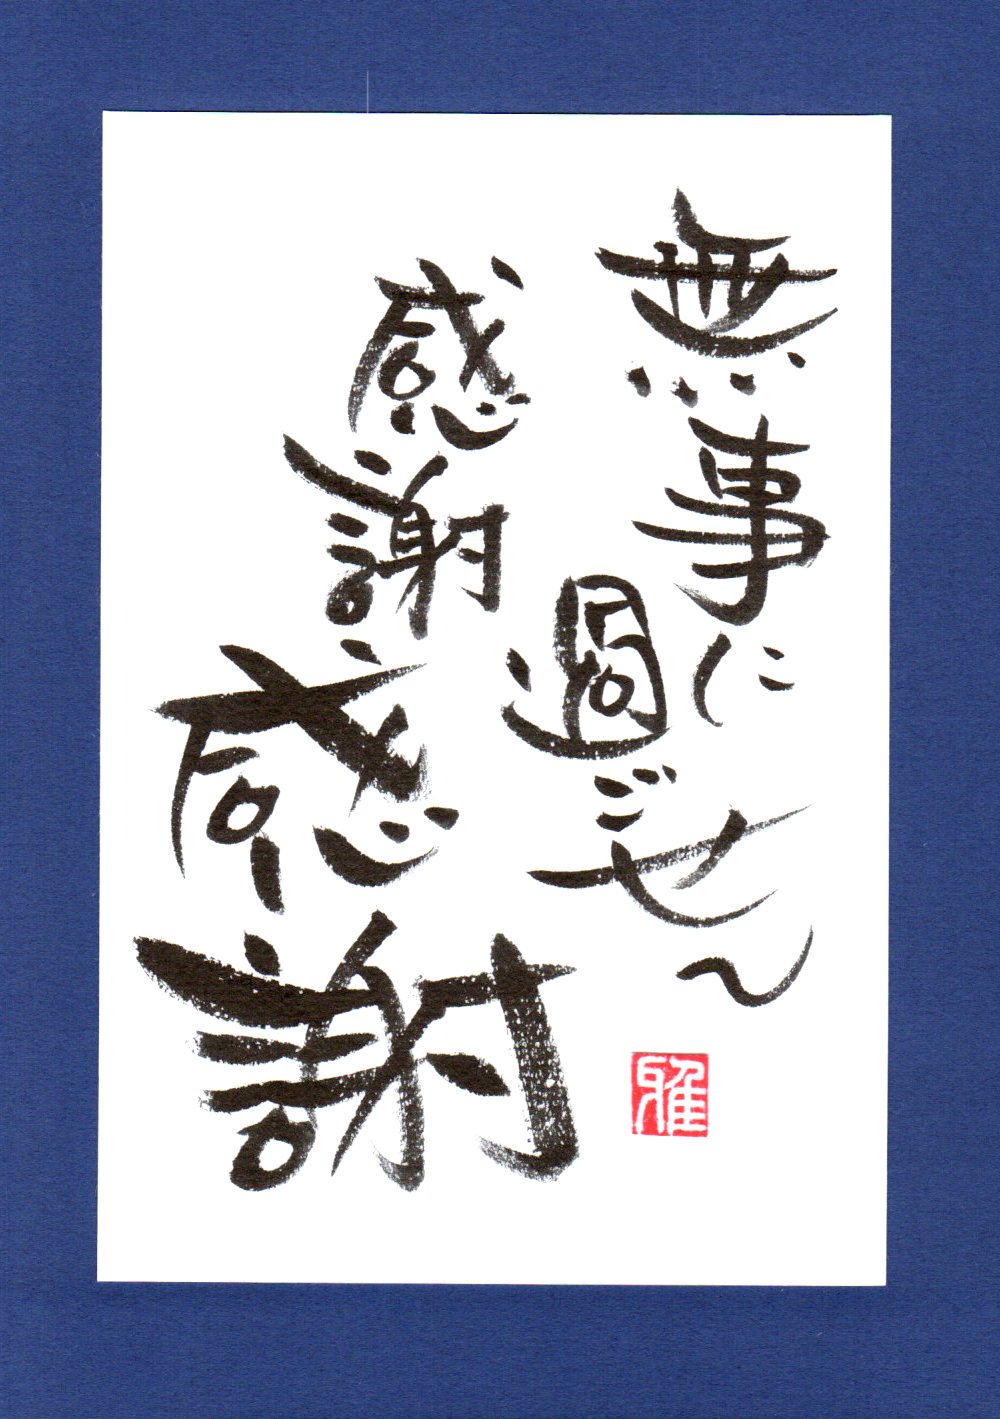 無事に
過ごせ〜
感謝
感謝
雅